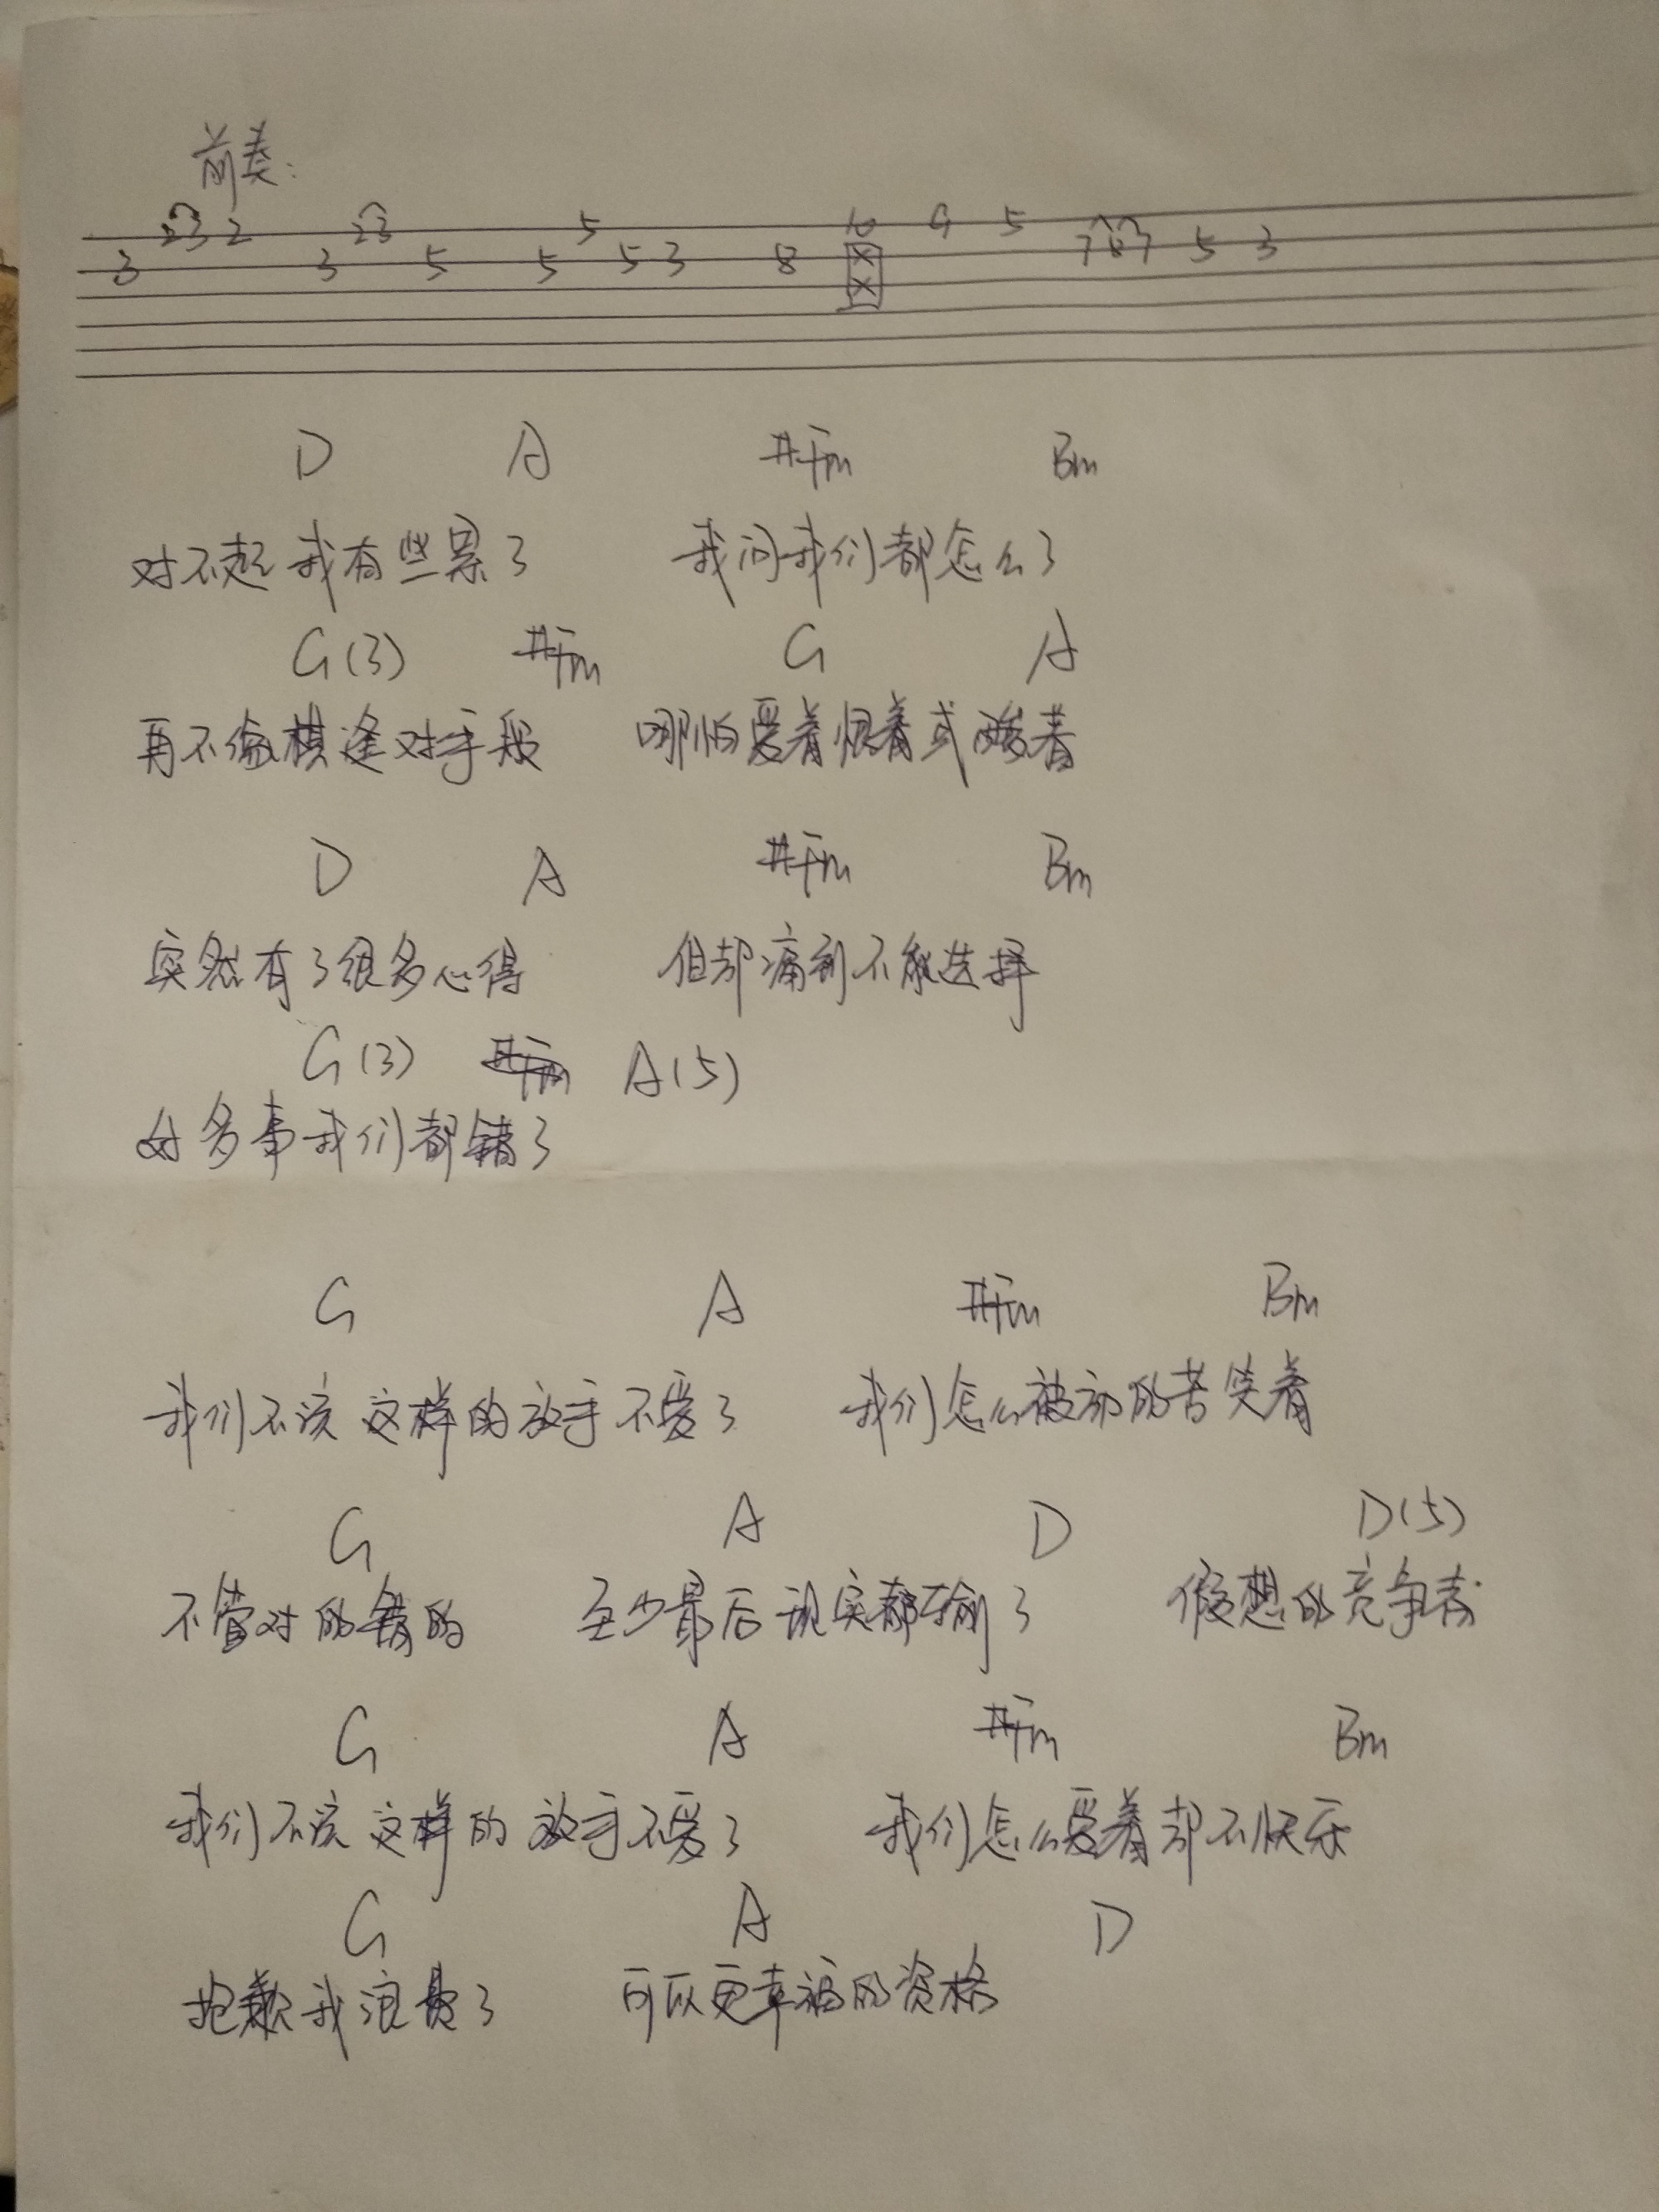 前奏:
2 3 2 2 3 5 10 9 5
3 3 5 5 5 3 8 X 7 8 7 5 3
X
D A #Fm Bm
对不起 我有些累了 我问我们都怎么了
G(3) #Fm G A
再不像棋逢对手般 哪怕爱着恨着或酸着
D A #Fm Bm
突然有了很多心得 但却痛到不能选择
G(3) #Fm A(5)
好多事我们都错了
G A #Fm Bm
我们不该 这样的放手不爱了 我们怎么被动的苦笑着
G A D D(5)
不管对的错的 至少最后现实都输了 假想的竞争者
G A #Fm Bm
我们不该 这样的 放手不爱了 我们怎么爱着却不快乐
G A D
抱歉我浪费了 可以更幸福的资格